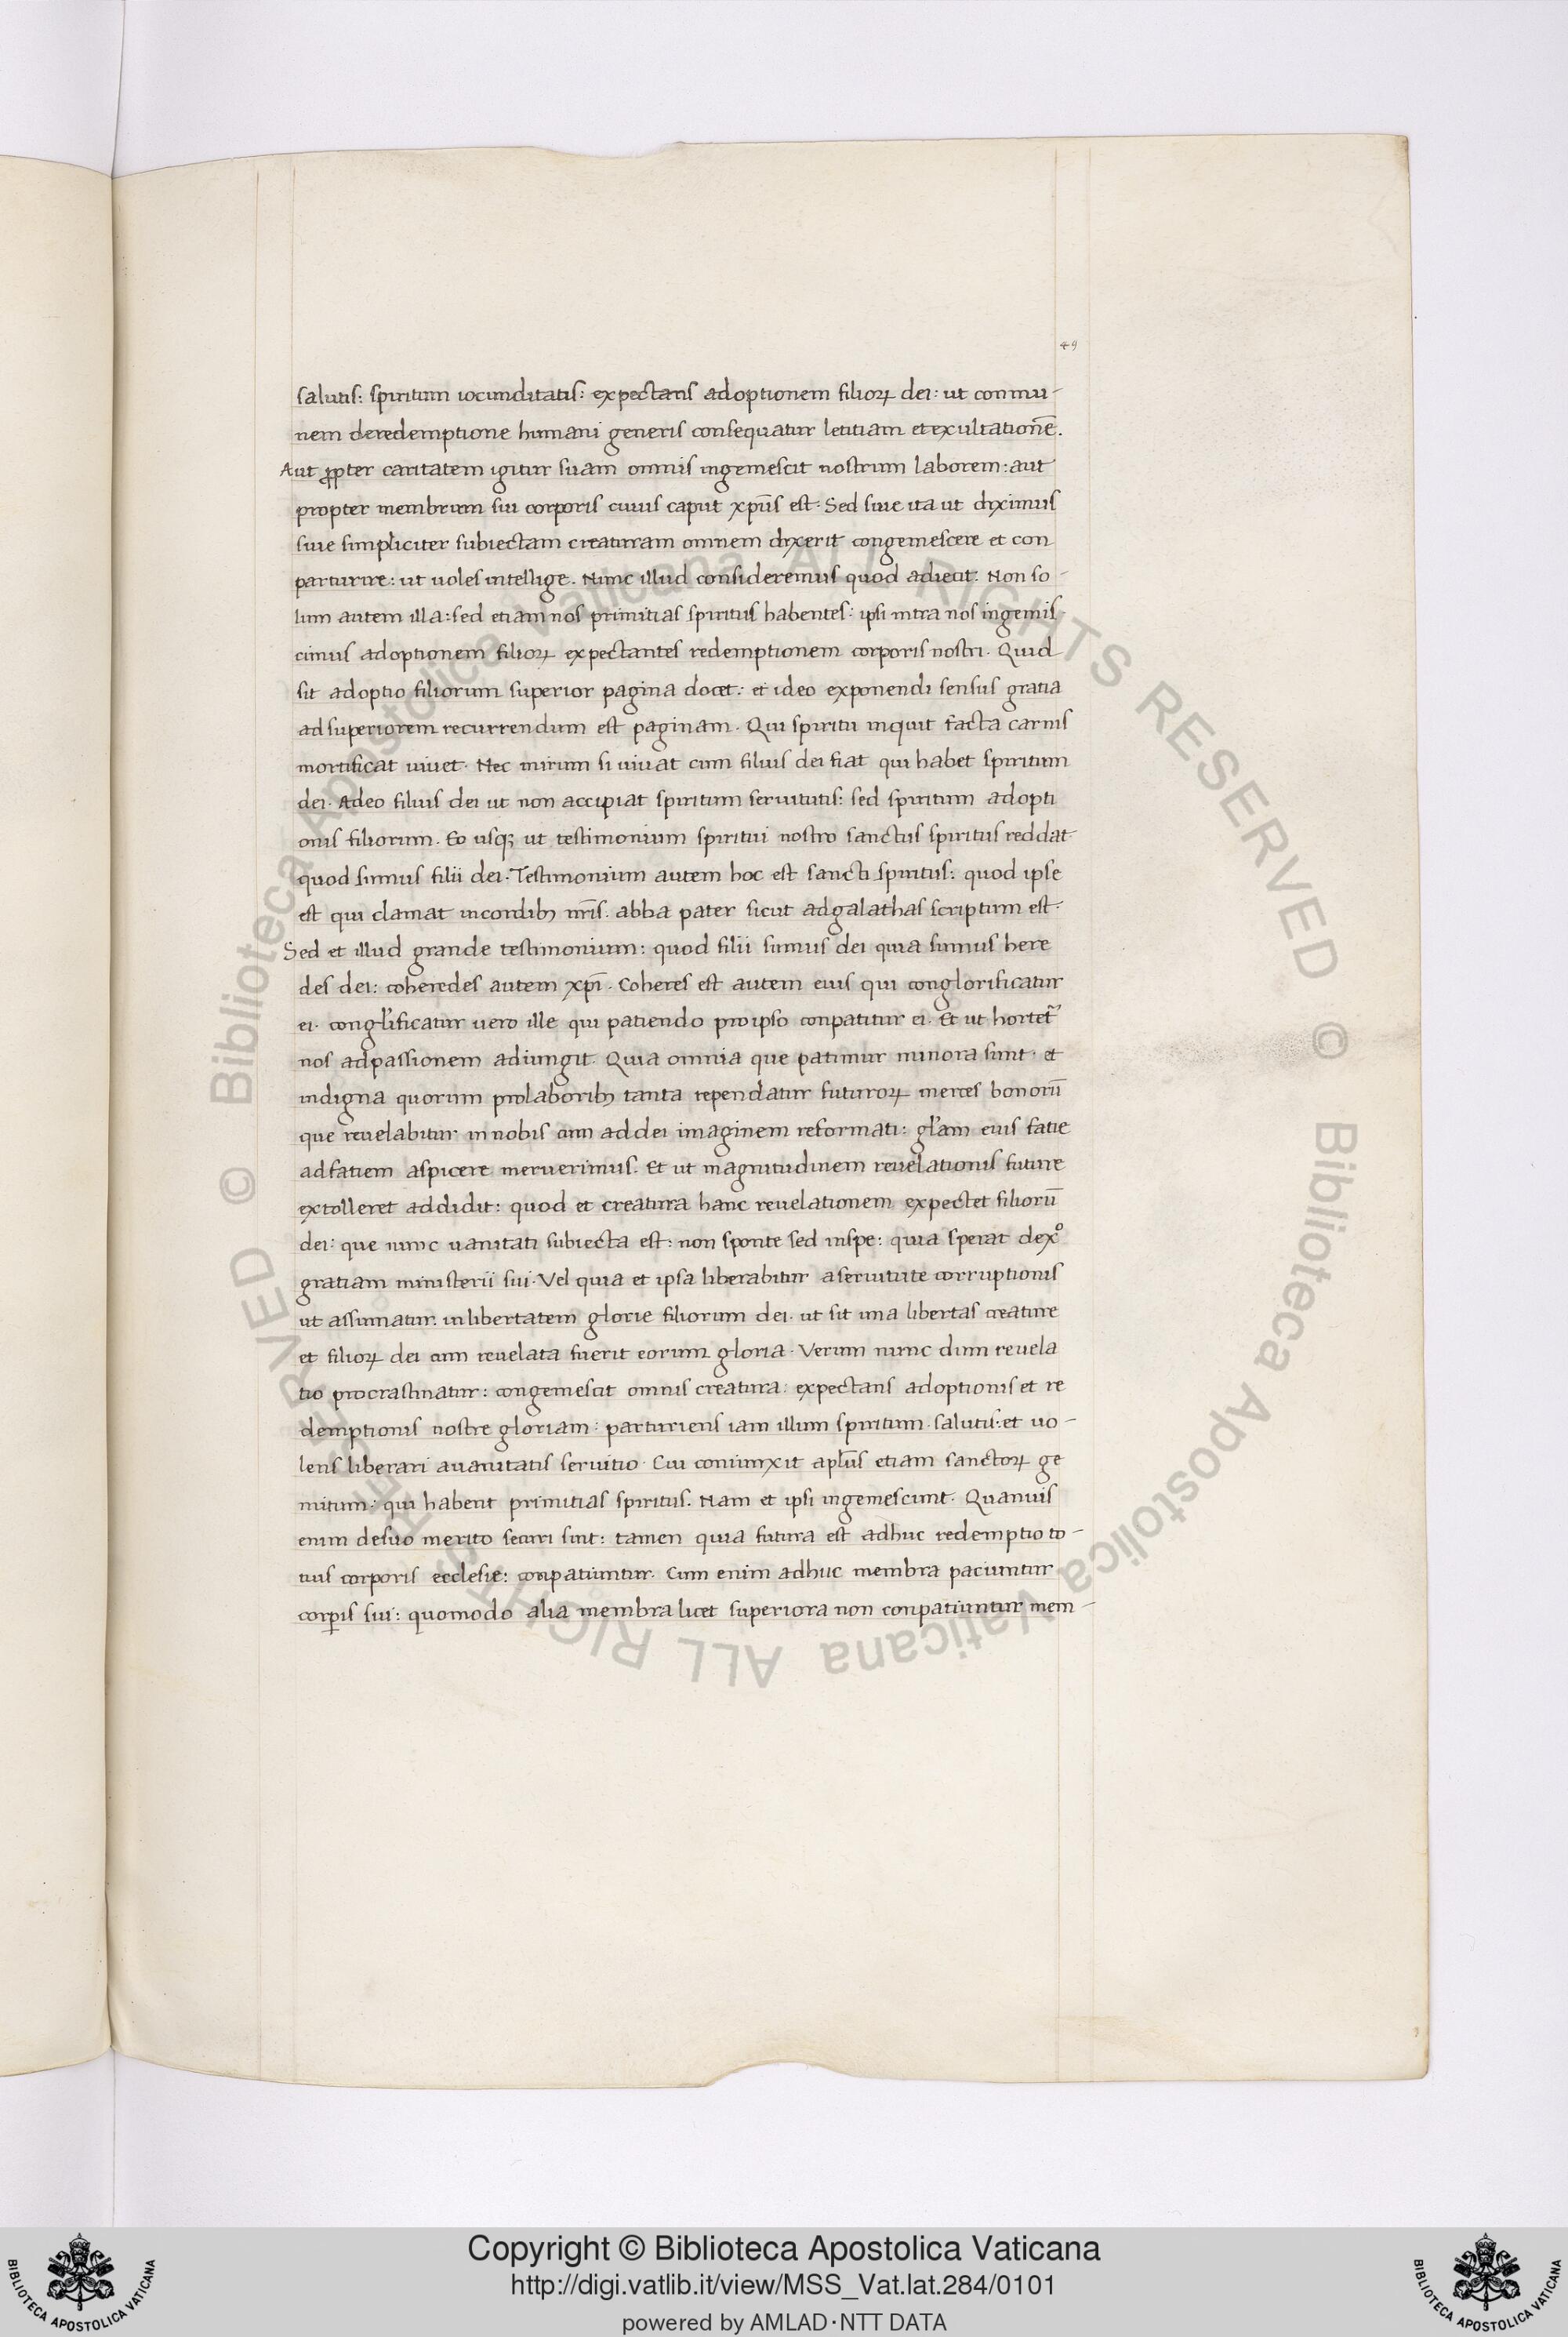 49
salutis: spiritum iocunditatis: expectans adoptionem filioꝝ dei: ut conmu-
nem deredemptione humani generis consequatur letitiam et exultationē.
Aut ꝓpter caritatem igitur suam omnis ingemescit nostrum laborem: aut
propter membrum sui corporis cuius caput xp̄us est. Sed siue ita ut diximus
siue simpliciter subiectam creaturam omnem dixerit congemescere et con
parturire: ut uoles intellige. Nunc illud consideremus quod adiecit: Non so-
lum autem illa: sed etiam nos primitias spiritus habentes: ipsi intra nos ingemis-
cimus adoptionem filioꝝ expectantes redemptionem corporis nostri. Quid
sit adoptio filiorum superior pagina docet: et ideo exponendi sensus gratia
ad superiorem recurrendum est paginam. Qui spiritu inquit facta carnis
mortificat uiuet. Nec mirum si uiuat cum filius dei fiat qui habet spiritum
dei. Adeo filius dei ut non accipiat spiritum seruitutis: sed spiritum adopti
onis filiorum. Eo usqꝫ ut testimonium spiritui nostro sanctus spiritus reddat
quod simus filii dei. Testimonium autem hoc est sancti spiritus: quod ipse
est qui clamat incordibꝫ nr̄is. abba pater sicut adgalathas scriptum est.
Sed et illud grande testimonium: quod filii sumus dei quia sumus here
des dei: coheredes autem xp̄i. Coheres est autem eius qui conglorificatur
ei. congl̄ificatur uero ille qui patiendo pro ipso conpatitur ei. Et ut hortet᷑
nos adpassionem adiungit. Quia omnia que patimur minora sunt. et
indigna quorum prolaboribꝫ tanta rependatur futuroꝝ merces bonorū
que reuelabitur in nobis cum ad dei imaginem reformati: gl̄am eius fatie
adfatiem aspicere meruerimus. Et ut magnitudinem reuelationis future
extolleret addidit: quod et creatura hanc reuelationem expectet filiorū
dei: que nunc uanitati subiecta est: non sponte sed inspe: quia sperat dexº
gratiam ministerii sui. Vel quia et ipsa liberabitur a seruitute corruptionis
ut assumatur in libertatem glorie filiorum dei. ut sit una libertas creature
et filioꝝ dei cum reuelata fuerit eorum gloria. Verum nunc dum reuela
tio procrastinatur: congemescit omnis creatura: expectans adoptionis et re
demptionis nostre gloriam: parturiens iam illum spiritum salutis: et uo-
lens liberari auanitatis seruitio. Cui coniunxit apl̄us etiam sanctoꝝ ge
mitum: qui habent primitias spiritus. Nam et ipsi ingemescunt. Quanuis
enim desuo merito securi sint: tamen quia futura est adhuc redemptio to-
tius corporis ecclesie: conpatiuntur. Cum enim adhuc membra paciuntur
corꝑis sui: quomodo alia membra licet superiora non conpatiuntur mem-
© Biblioteca Apostolica Vaticana ALL RIGHTS RESERVED © Biblioteca Apostolica Vaticana ALL RIGHTS RESERVED
BIBLIOTECA APOSTOLICA VATICANA
Copyright © Biblioteca Apostolica Vaticana
http://digi.vatlib.it/view/MSS_Vat.lat.284/0101
powered by AMLAD·NTT DATA
BIBLIOTECA APOSTOLICA VATICANA